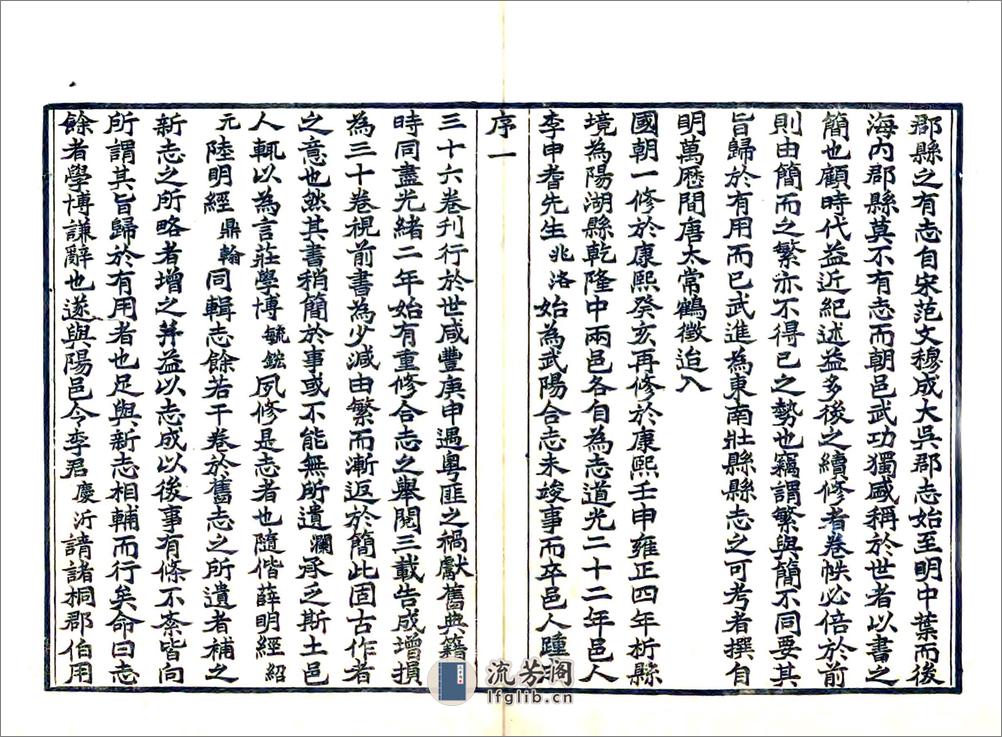 郡縣之有志自宋范文穆成大吳郡志始至明中葉而後
海內郡縣莫不有志而朝邑武功獨盛稱於世者以書之
簡也顧時代益近紀述益多後之續修者卷帙必倍於前
則由簡而之繁亦不得已之勢也竊謂繁與簡不同要其
旨歸於有用而已武進為東南壯縣縣志之可考者撰自
明萬厯間唐太常鶴徵迨入
國朝一修於康熙癸亥再修於康熙壬申雍正四年析縣
境為陽湖縣乾隆中兩邑各自為志道光二十二年邑人
李申耆先生兆洛始為武陽合志未竣事而卒邑人踵
序一
三十六卷刊行於世咸豐庚申遇粵匪之禍獻舊典籍
時同盡光緒二年始有重修合志之舉閱三載告成增損
為三十卷視前書為少減由繁而漸返於簡此固古作者
之意也然其書稍簡於事或不能無所遺瀾承乏斯土邑
人輒以為言莊學博毓鋐夙修是志者也隨偕薛明經紹
元陸明經鼎翰同輯志餘若干卷於舊志之所遺者補之
新志之所略者增之并益以志成以後事有條不紊皆向
所謂其旨歸於有用者也足與新志相輔而行矣命曰志
餘者學博謙辭也遂與陽邑令李君慶沂請諸桐郡伯用
流芳閣
lfglib.cn